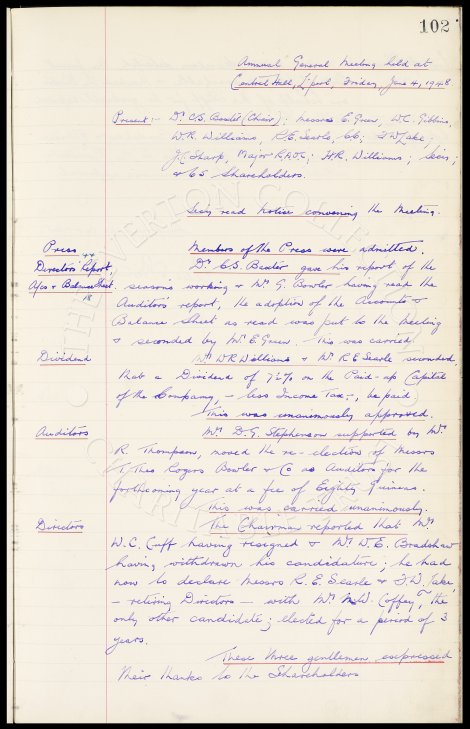 102
Annual General Meeting held at
Central Hall, L'pool, Friday, June 4, 1948
Present:- Dr. C.S. Baxter (Chair); Messrs E. Green, W.C. Gibbins,
W.R. Williams, R.E. Searle, F.W. Lake,
J.C. Sharp, Major R.A.O.C; H.R. Williams; Secy;
& 65 Shareholders.
Secy read Notice convening the Meeting.
Press Members of the Press were admitted.
Directors' Report Dr. C.S. Baxter gave his report of the
A/cs & Balance Sheet season's working & Mr G. Bowler having read the
18 Auditors report, the adoption of the Accounts &
Balance Sheet as read was put to the Meeting
& seconded by Mr E. Green. This was carried
Dividend Mr W.R. Williams & Mr R.E. Searle seconded,
that a Dividend of 7½% on the Paid-up Capital
of the Company, - less Income Tax -, be paid
This was unanimously approved.
Auditors Mr D.G. Stephenson supported by Mr
R. Thompson, moved the re-election of Messrs
T. Theo Rogers Bowler & Co as Auditors for the
forthcoming year at a fee of Eighty Guineas.
This was carried unanimously.
Directors The Chairman reported that Mr
W.C. Cuff having resigned & Mr W.E. Bradshaw
having withdrawn his candidature; he had
now to declare Messrs R.E. Searle & F.W. Lake,
- retiring Directors - with Mr M.W. Coffey, the
only other candidate; elected for a period of 3
years.
These three gentlemen expressed
their thanks to the Shareholders
EVERTON COLLECTION
CHARITABLE TRUST